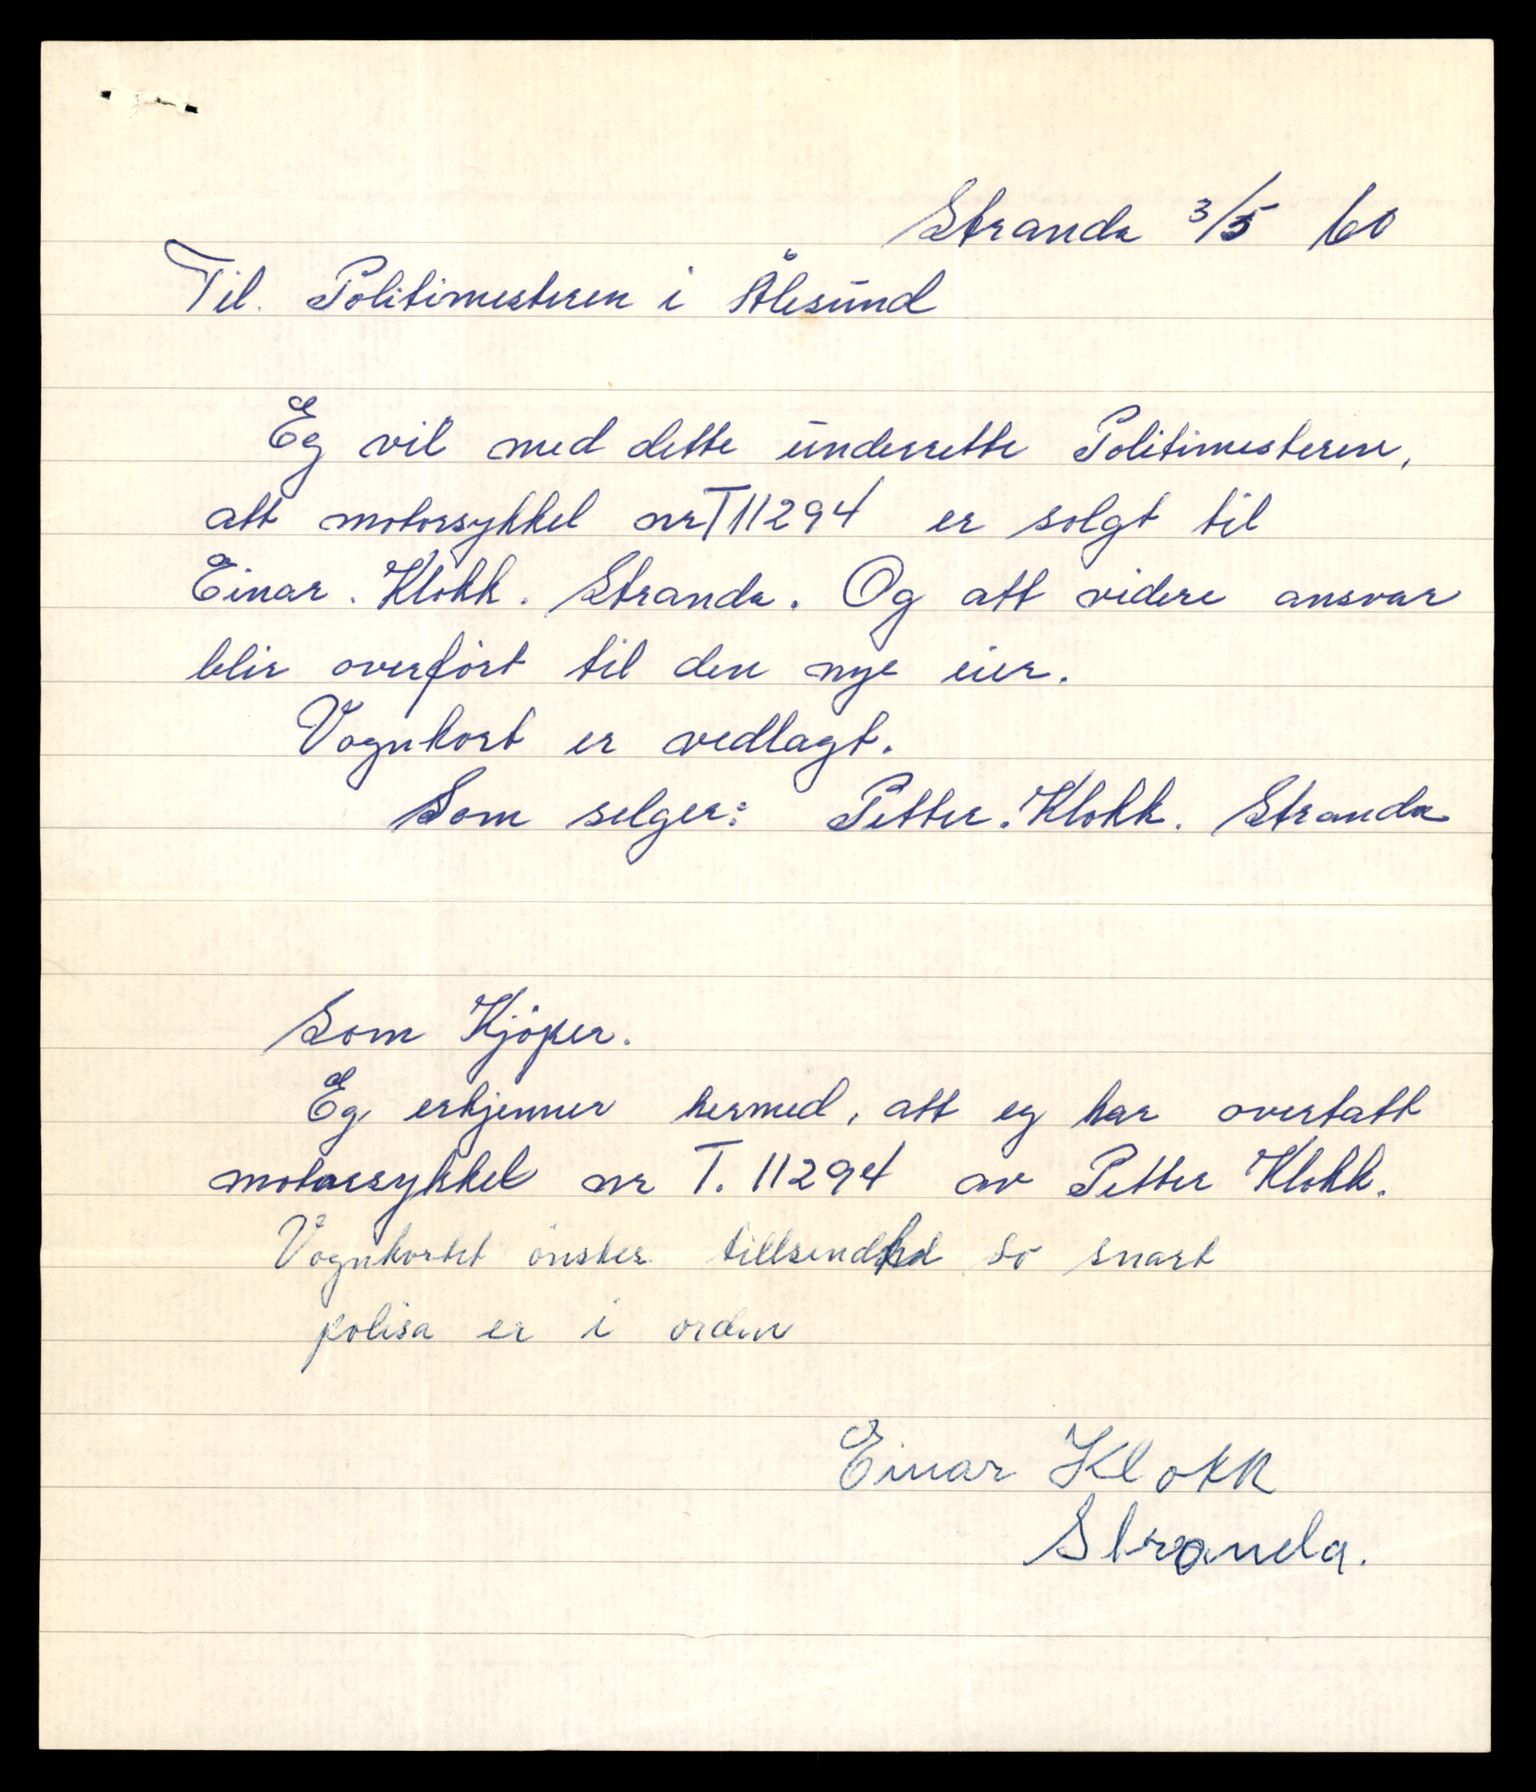 Stranda 3/5 60
Til. Politimesteren i Ålesund
Eg vil med dette underrette Politimesteren,
att motorsykkel nr T11294 er solgt til
Einar. Klokk. Stranda. Og att videre ansvar
blir overført til den nye eier.
Vognkort er vedlagt.
Som selger: Petter. Klokk. Stranda
Som Kjøper.
Eg erkjenner hermed, att eg har overtatt
motorsykkel nr T. 11294 av Petter Klokk.
Vognkortet ønskes so snart
polisa er i orden
Einar Klokk
Stranda.